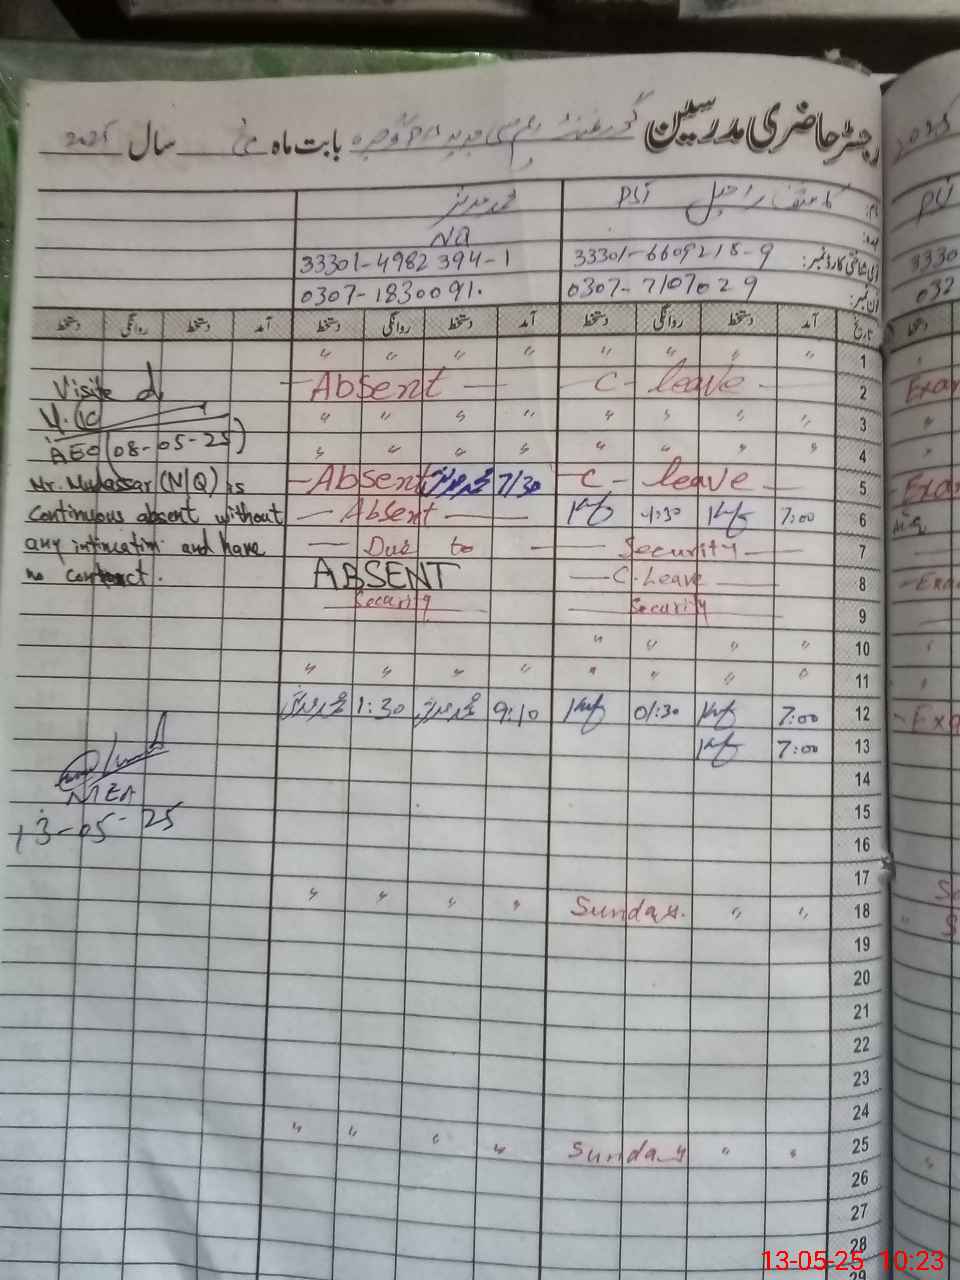 رجسٹر حاضری مدرسین گورنمنٹ بابت ماہ مئی سال 2025
نام: کاشف راحیل PST محمد مدثر
عہدہ: NQ
شناختی کارڈ نمبر: 33301-6609218-9 33301-4982394-1
فون نمبر: 0307-7107029 0307-1830091.
تاریخ آمد دستخط روانگی دستخط آمد دستخط روانگی دستخط آمد دستخط روانگی دستخط
1 " " " " " " " "
2 C - leave - - Absent -
3 " " " " " " " "
4 " " " " " " " "
5 - C - leave - 7/30 - Absent
6 7:00 1:30 - Absent -
7 - Security - - Due to -
8 - C. Leave ABSENT
9 Security Security
10 " " " "
11 " " " " " " " "
12 7:00 01:30 9:10 1:30
13 7:00
14
15
16
17
18 Sunday. " " " " " "
19
20
21
22
23
24
25 Sunday " " " " " "
26
27
28
29
Visited
AEO (08-05-25)
Mr. Mudassar (N/Q) is
Continuous absent without
any intimation and have
no contact.
MEA
13-05-25
2025
PST
3330
032
Exa
13-05-25 10:23